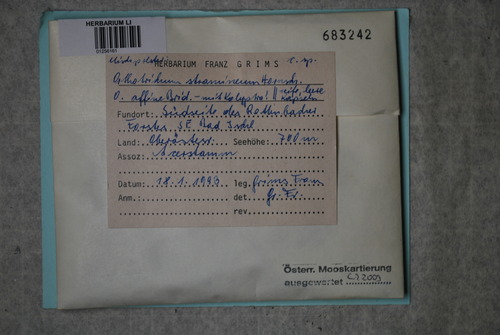 HERBARIUM LI
683242
HERBARIUM FRANZ GRIMS c. sp.
Orthotrichum stramineum Hornsch.
O. affine Brid. - mit Kalyptra!
Fundort: Südseite des
Forsten, SE Bad Ischl
Land: Oberösterr. Seehöhe: 700 m
Assoz: Acerstamm
Datum: 18.1.1993 leg. Grims Franz
Anm.: det. Gr. Fr.
rev.
Österr. Mooskartierung
ausgewertet 2003